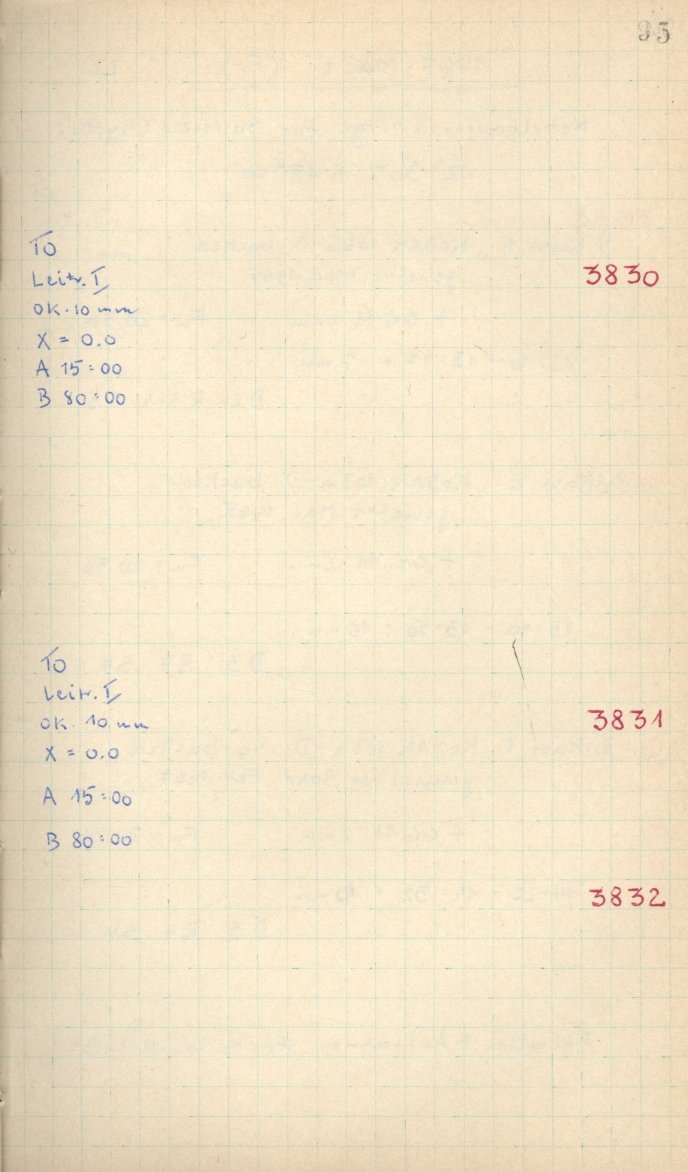 95
TO
Leitr. I
OK. 10 mm
X = 0.0
A 15:00
B 80:00
3830
TO
Leitr. I
OK. 10 mm
X = 0.0
A 15:00
B 80:00
3831
3832